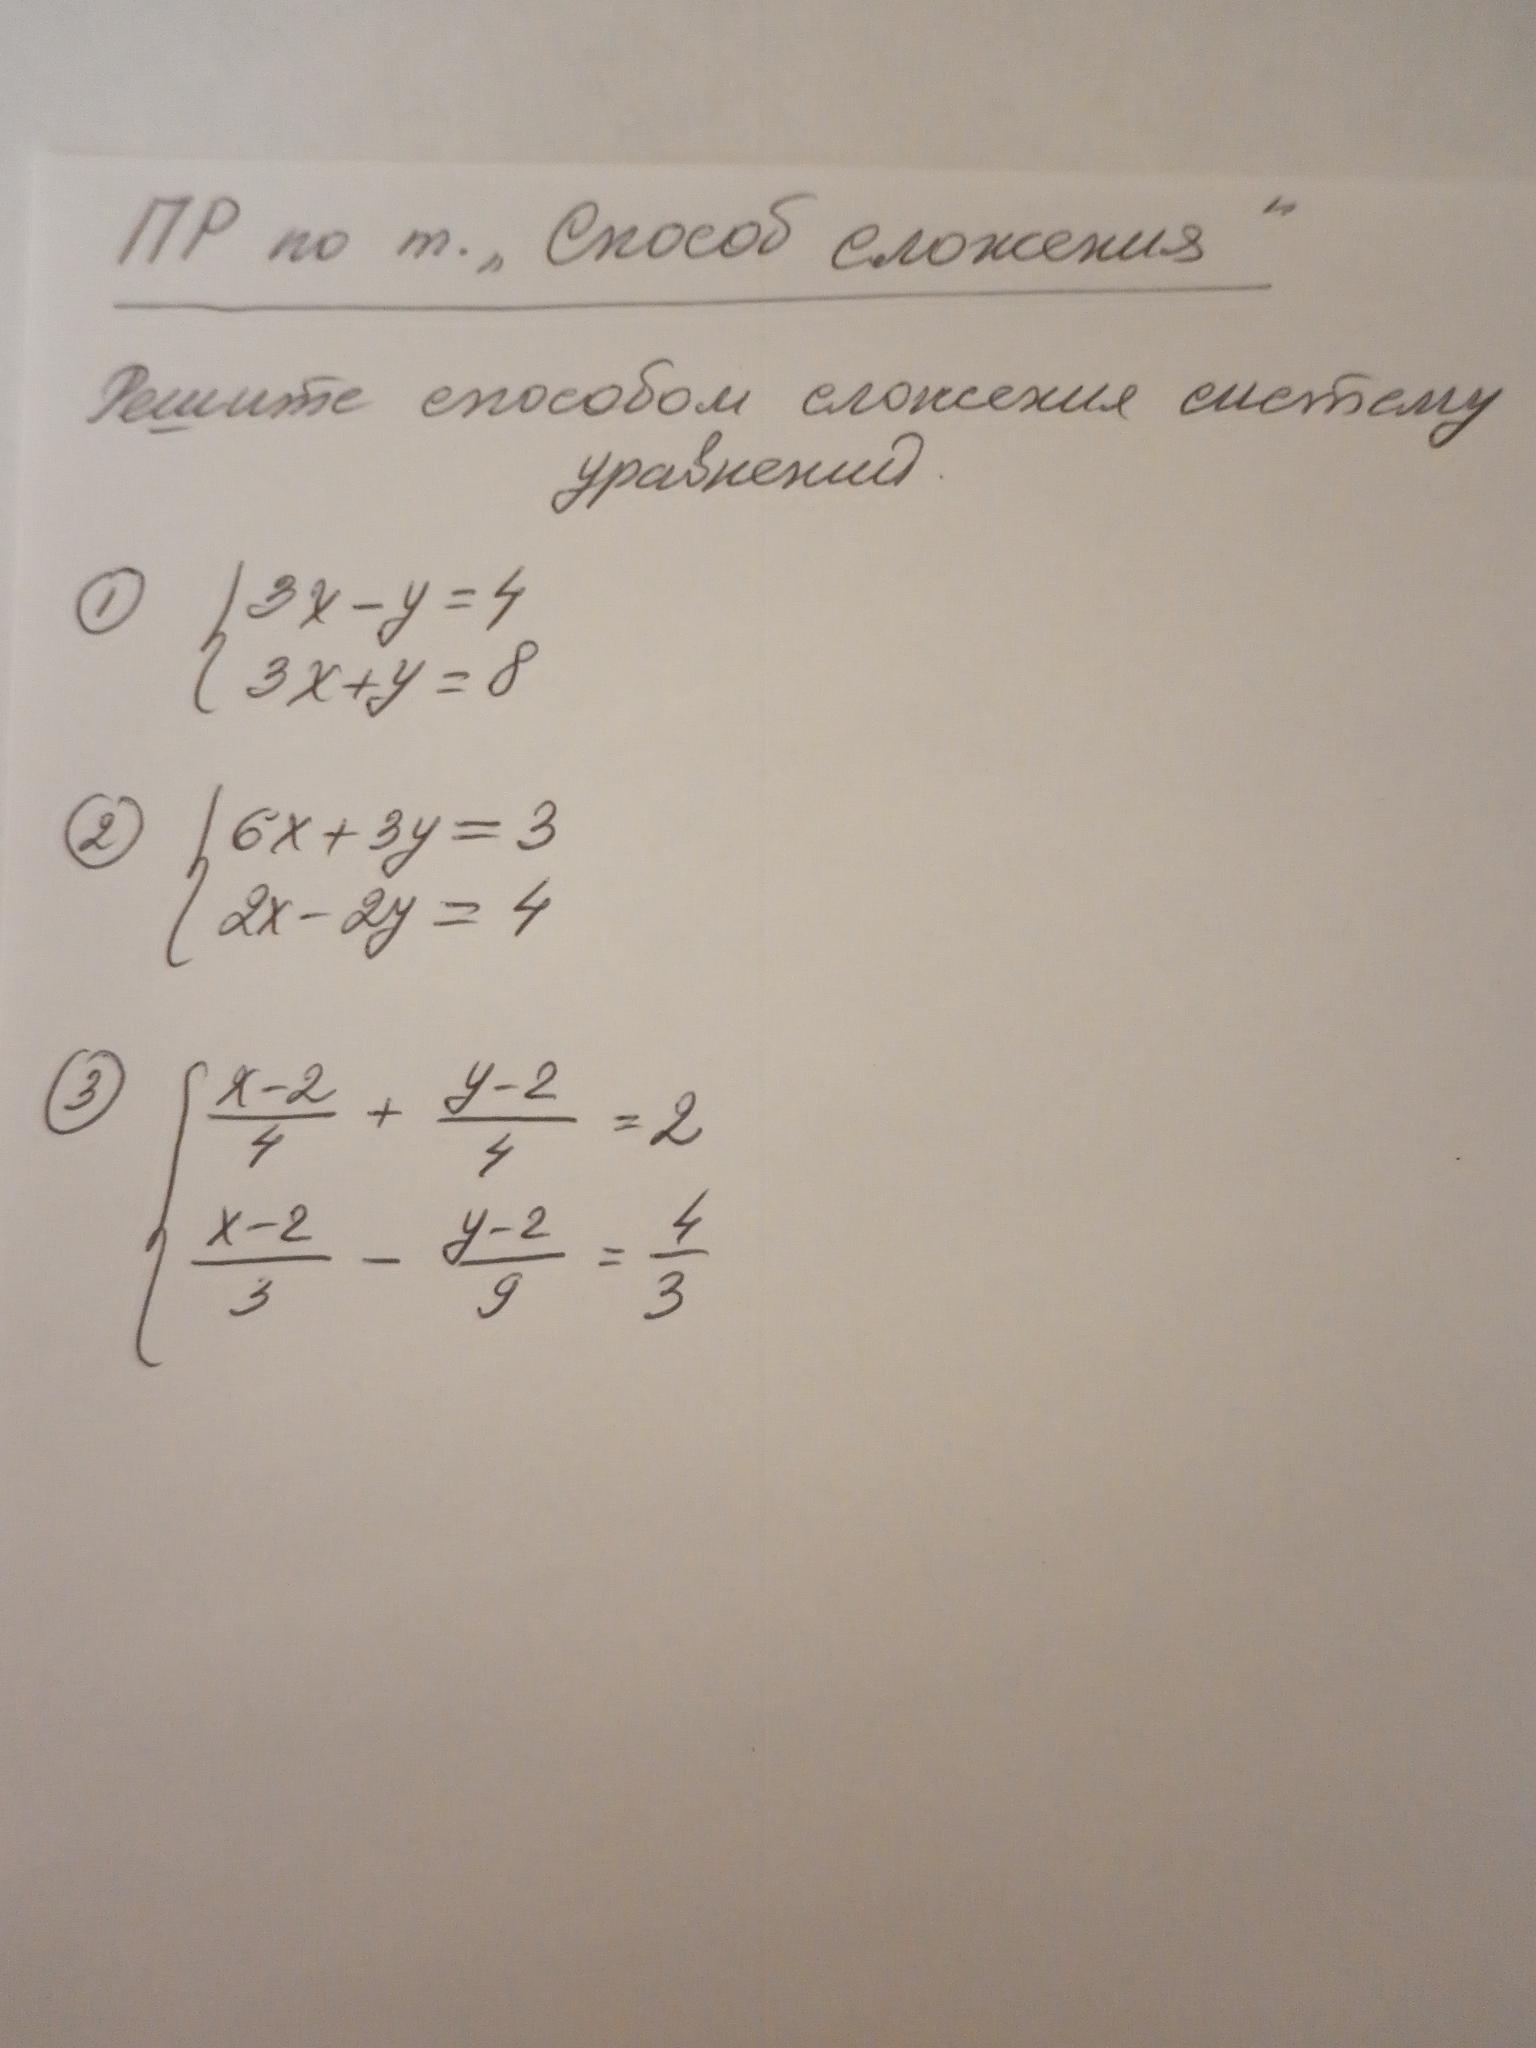 ПР по т. „Способ сложения“
Решите способом сложения систему
уравнений.
① { 3x - y = 4
3x + y = 8
② { 6x + 3y = 3
2x - 2y = 4
③ { (x-2)/4 + (y-2)/4 = 2
(x-2)/3 - (y-2)/9 = 4/3